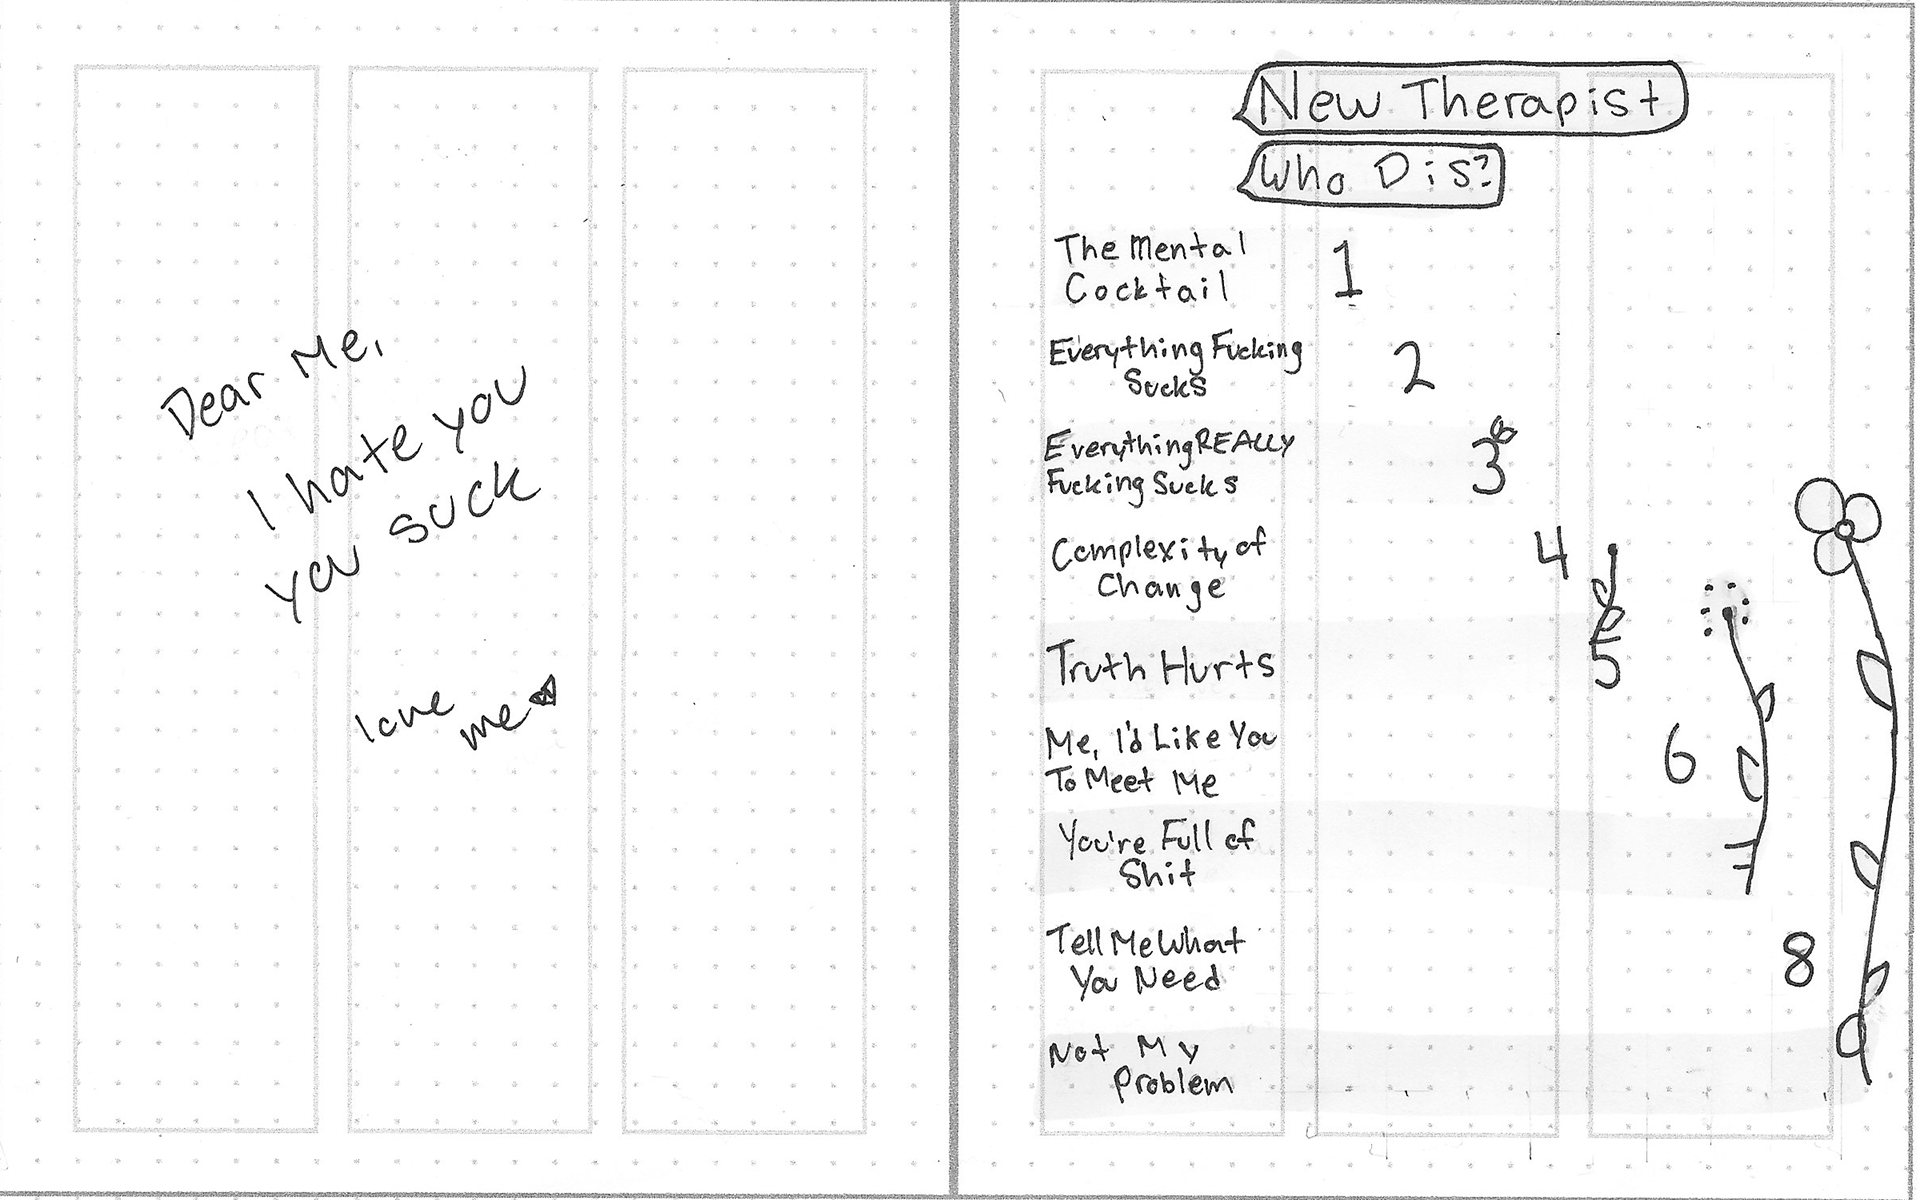 Dear Me,
I hate you
you suck
love
me
New Therapist
Who Dis?
The Mental
Cocktail
1
Everything Fucking
Sucks
2
Everything REALLY
Fucking Sucks
3
Complexity of
Change
4
Truth Hurts
5
Me, I'd Like You
To Meet Me
6
You're Full of
Shit
7
Tell Me What
You Need
8
Not My
Problem
9